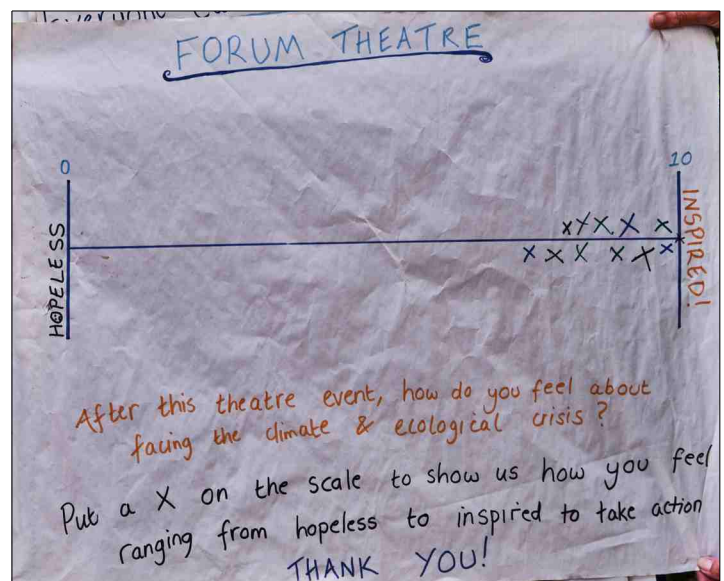 FORUM THEATRE
0
10
HOPELESS
INSPIRED!
After this theatre event, how do you feel about
facing the climate & ecological crisis?
Put a X on the scale to show us how you feel
ranging from hopeless to inspired to take action
THANK YOU!